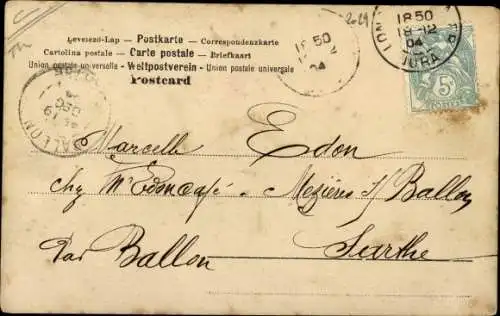 Levelező-Lap — Postkarte — Correspondenzkarte
Cartolina postale — Carte postale — Briefkaart
Union postale universelle — Weltpostverein — Union postale universale
Postcard
269
18 50
18-12
04
JURA
50
04
BALLON
19
DEC
5
Marcelle Edon
chez Mr Edon café - Mezières s/ Ballon
par Ballon Sarthe